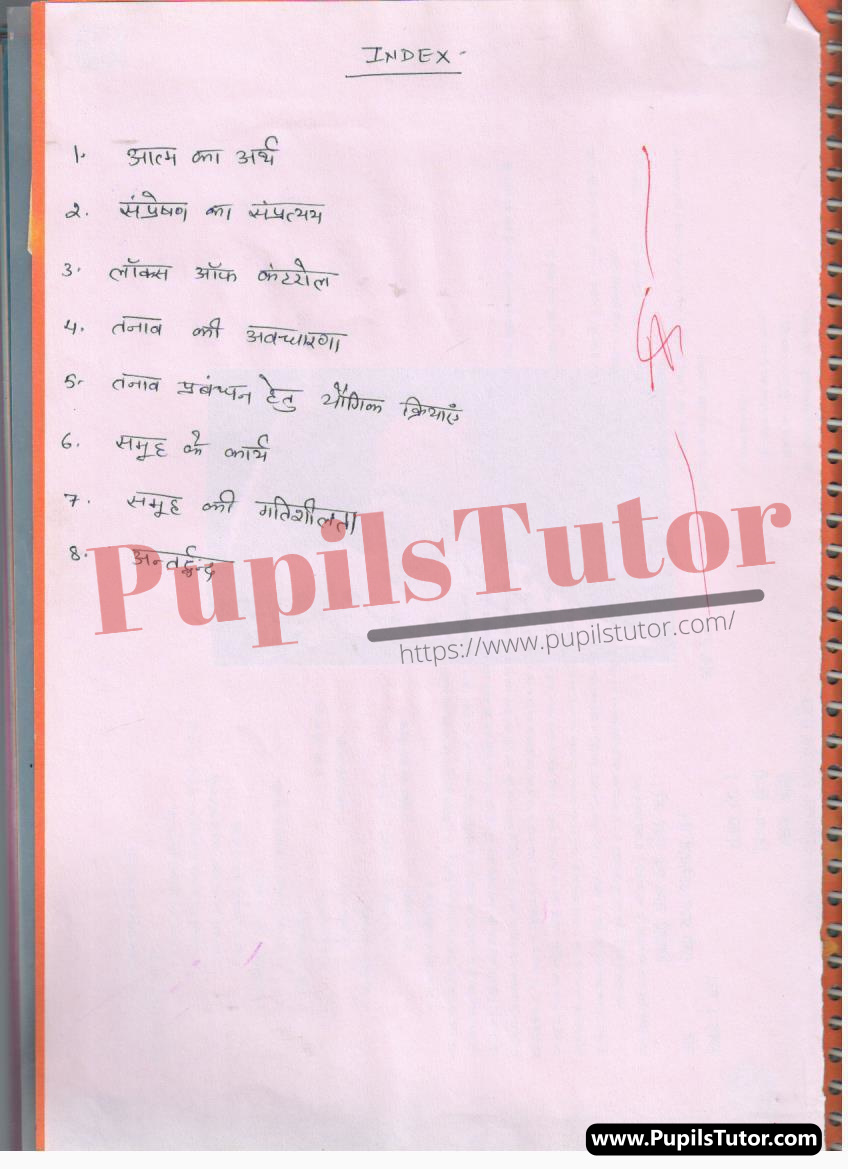 INDEX -
1. आत्म का अर्थ
2. संप्रेषण का संप्रत्यय
3. लॉकस ऑफ कंटरोल
4. तनाव की अवधारणा
5. तनाव प्रबंधन हेतु यौगिक क्रियाएं
6. समूह के कार्य
7. समूह की गतिशीलता
8. अन्तर्द्वन्द
PupilsTutor
https://www.pupilstutor.com/
www.PupilsTutor.com